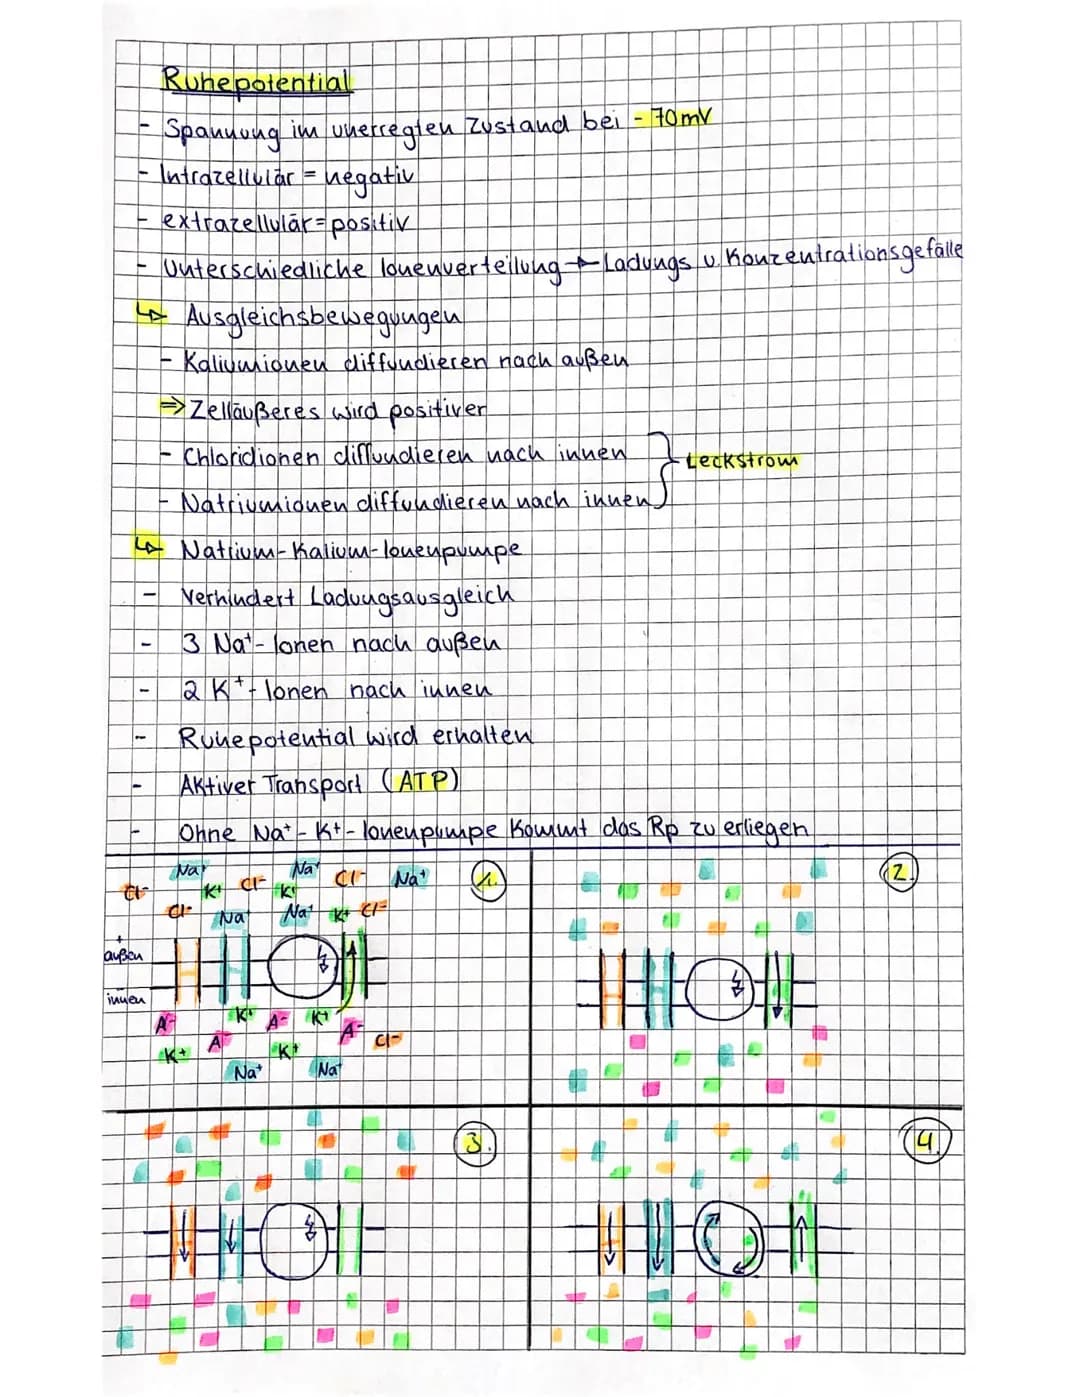 Ruhepotential
- Spannung im unerregten Zustand bei - 70mV
- Intrazellulär = negativ
- extrazellulär = positiv
- Unterschiedliche Ionenverteilung → Ladungs u. Konzentrationsgefälle
↳ Ausgleichsbewegungen
- Kaliumionen diffundieren nach außen
⇒ Zelläußeres wird positiver
- Chloridionen diffundieren nach innen
Leckstrom
- Natriumionen diffundieren nach innen
↳ Natrium-Kalium-Ionenpumpe
- Verhindert Ladungsausgleich
- 3 Na⁺- Ionen nach außen
- 2 K⁺- Ionen nach innen
- Ruhepotential wird erhalten
- Aktiver Transport (ATP)
- Ohne Na⁺- K⁺- Ionenpumpe kommt das Rp zu erliegen
Na⁺ Na⁺
Cl⁻ K⁺ Cl⁻ K⁺ Cl⁻ Na⁺ 1.
Cl⁻ Na⁺ Na⁺ K⁺ Cl⁻
+
außen
innen
A⁻ K⁺ A⁻ K⁺
A⁻ A⁻ Cl⁻
K⁺ K⁺
Na⁺ Na⁺
2.
3.
4.